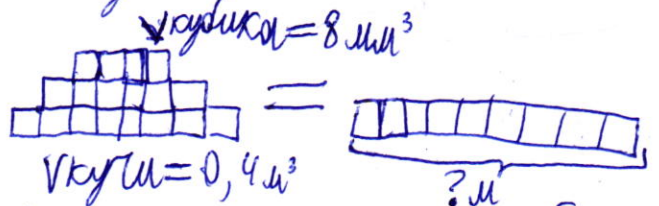 Vкубика = 8 мм³
=
Vкучи = 0,4 м³
? м